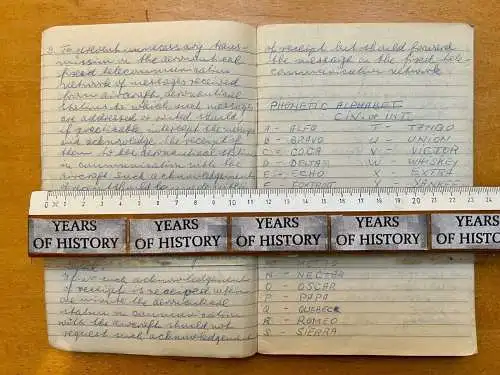 2. To prevent unnecessary trans-
mission in the aeronautical
fixed telecommunication
network of messages received
from aircraft, aeronautical
stations to which such messages
are addressed or routed should
if practicable, intercept the message
and acknowledge the receipt of
them to the aeronautical station
in communication with the
aircraft such a acknowledgement
of receipt but should forward
the message in the fixed tele-
communication network
PHONETIC ALPHABET
CIV. or INT.
A - ALFA T - TANGO
B - BRAVO U - UNION
C - COCA V - VICTOR
D - DELTA W - WHISKEY
E - ECHO X - EXTRA
F - FOXTROT Y - YANKEE
0 1 2 3 4 5 6 7 8 9 10 11 12 13 14 15 16 17 18 19 20 21 22 23 24
YEARS OF HISTORY
YEARS OF HISTORY
YEARS OF HISTORY
YEARS OF HISTORY
YEARS OF HISTORY
If no such acknowledgement
of receipt is received within
one minute the aeronautical
station in communication
with the aircraft should not
request such acknowledgement
M - METRO
N - NECTAR
O - OSCAR
P - PAPA
Q - QUEBEC
R - ROMEO
S - SIERRA